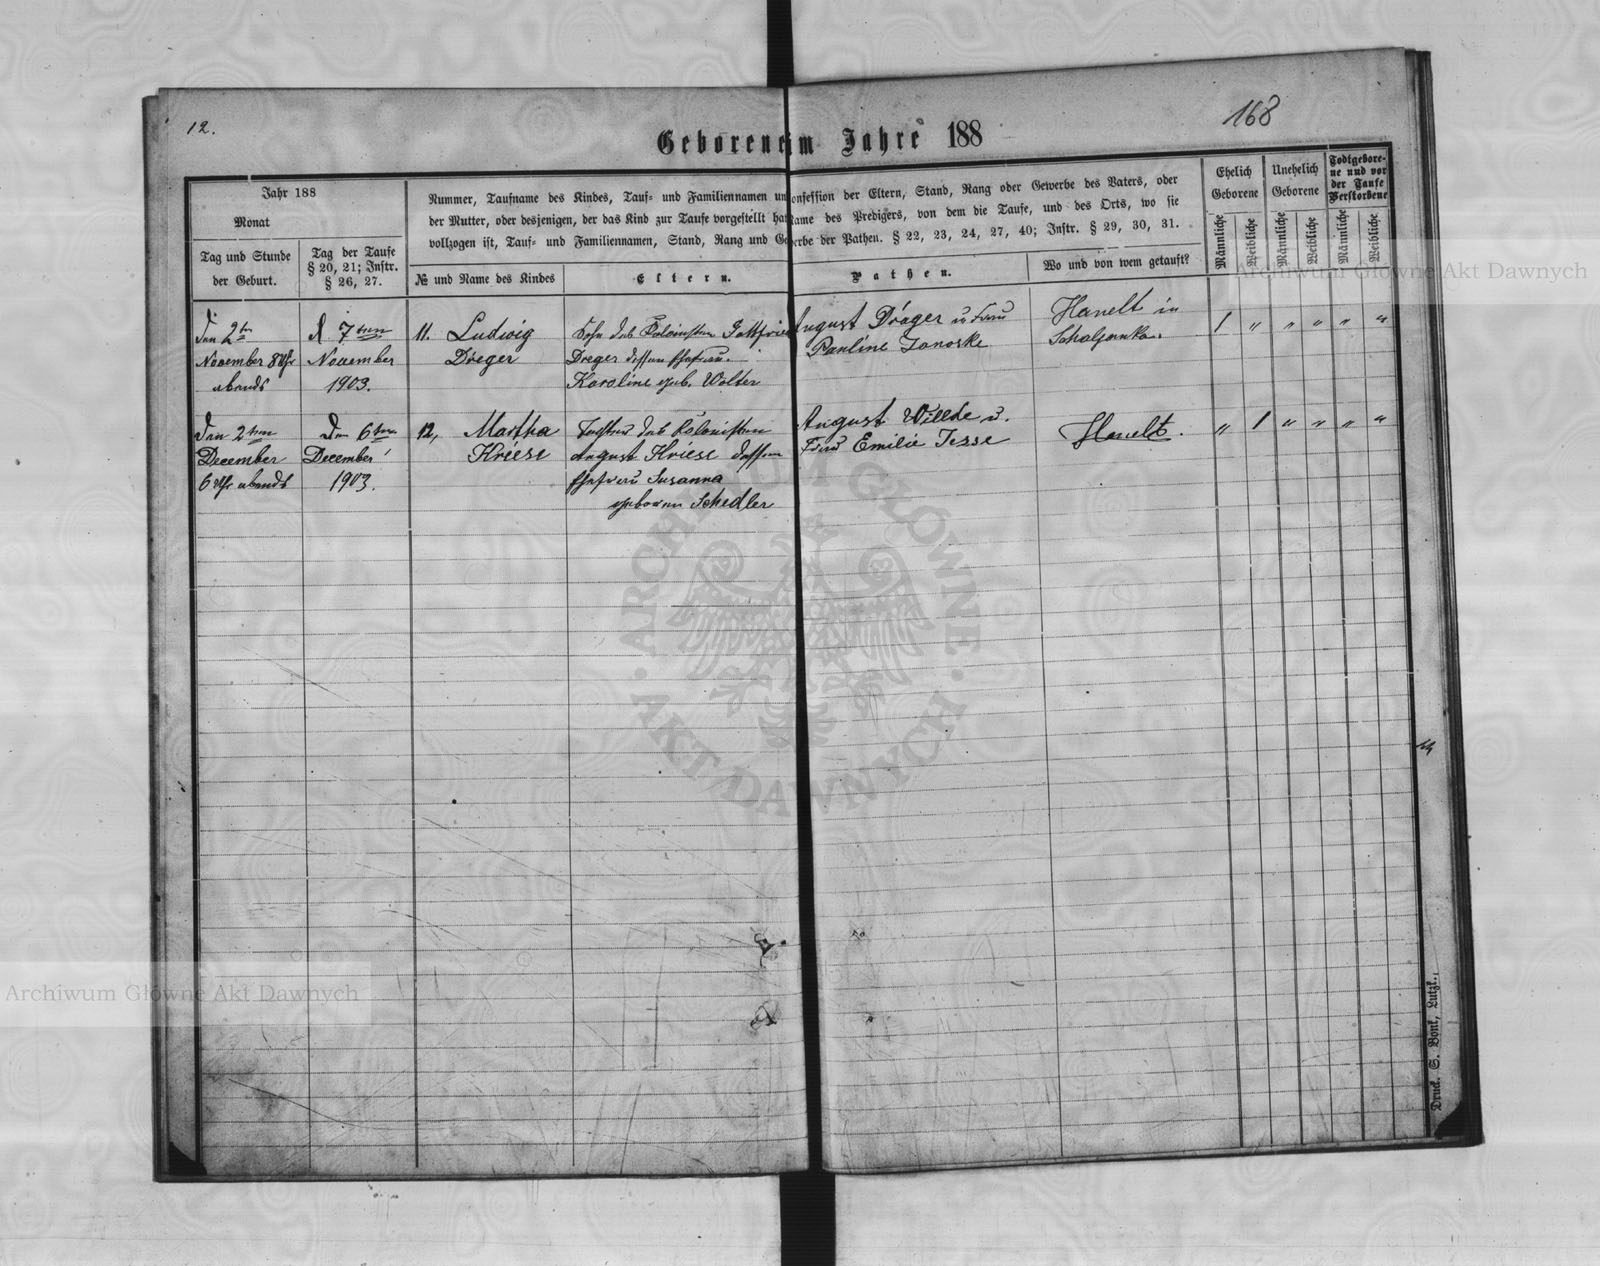 12.
168
Geborene im Jahre 188
Jahr 188
Monat
Tag und Stunde
der Geburt.
Tag der Taufe
§ 20, 21; Instr.
§ 26, 27.
Nummer, Taufname des Kindes, Tauf- und Familiennamen un onfession der Eltern, Stand, Rang oder Gewerbe des Vaters, oder
der Mutter, oder desjenigen, der das Kind zur Taufe vorgestellt hat Name des Predigers, von dem die Taufe, und des Orts, wo sie
vollzogen ist, Tauf- und Familiennamen, Stand, Rang und Ge werbe der Pathen. § 22, 23, 24, 27, 40; Instr. § 29, 30, 31.
№ und Name des Kindes
Eltern.
Pathen.
Wo und von wem getauft?
Ehelich
Geborene
Unehelich
Geborene
Todtgebore-
ne und vor
der Taufe
Verstorbene
Männliche
Weibliche
Männliche
Weibliche
Männliche
Weibliche
den 2ten
November 8 Uhr
abends
d 7ten
November
1903.
11. Ludwig
Dreger
Sohn des Kolonisten Gottfried
Dreger dessen Ehefrau
Karoline geb. Wolter
August Dräger u Frau
Pauline Janoske
Hanelt in
1 " " " " "
den 2ten
December
6 Uhr abends
Den 6ten
December
1903.
12, Martha
Kriese
Tochter des Kolonisten
August Kriese dessen
Ehefrau Susanna
geboren Schedler
August Willde u.
Frau Emilie Jesse
Hanelt.
" 1 " " " "
Druck. S. Bonk, Lutzk.
Archiwum Główne Akt Dawnych
Archiwum Główne Akt Dawnych
ARCHIWUM GŁÓWNE · AKT DAWNYCH ·